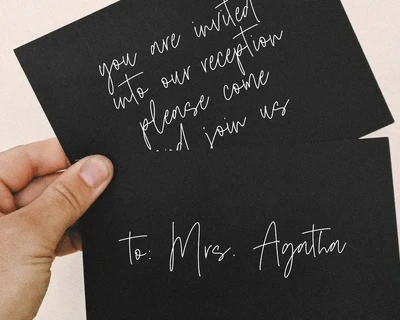 you are invited
into our reception
please come
and join us
to: Mrs. Agatha